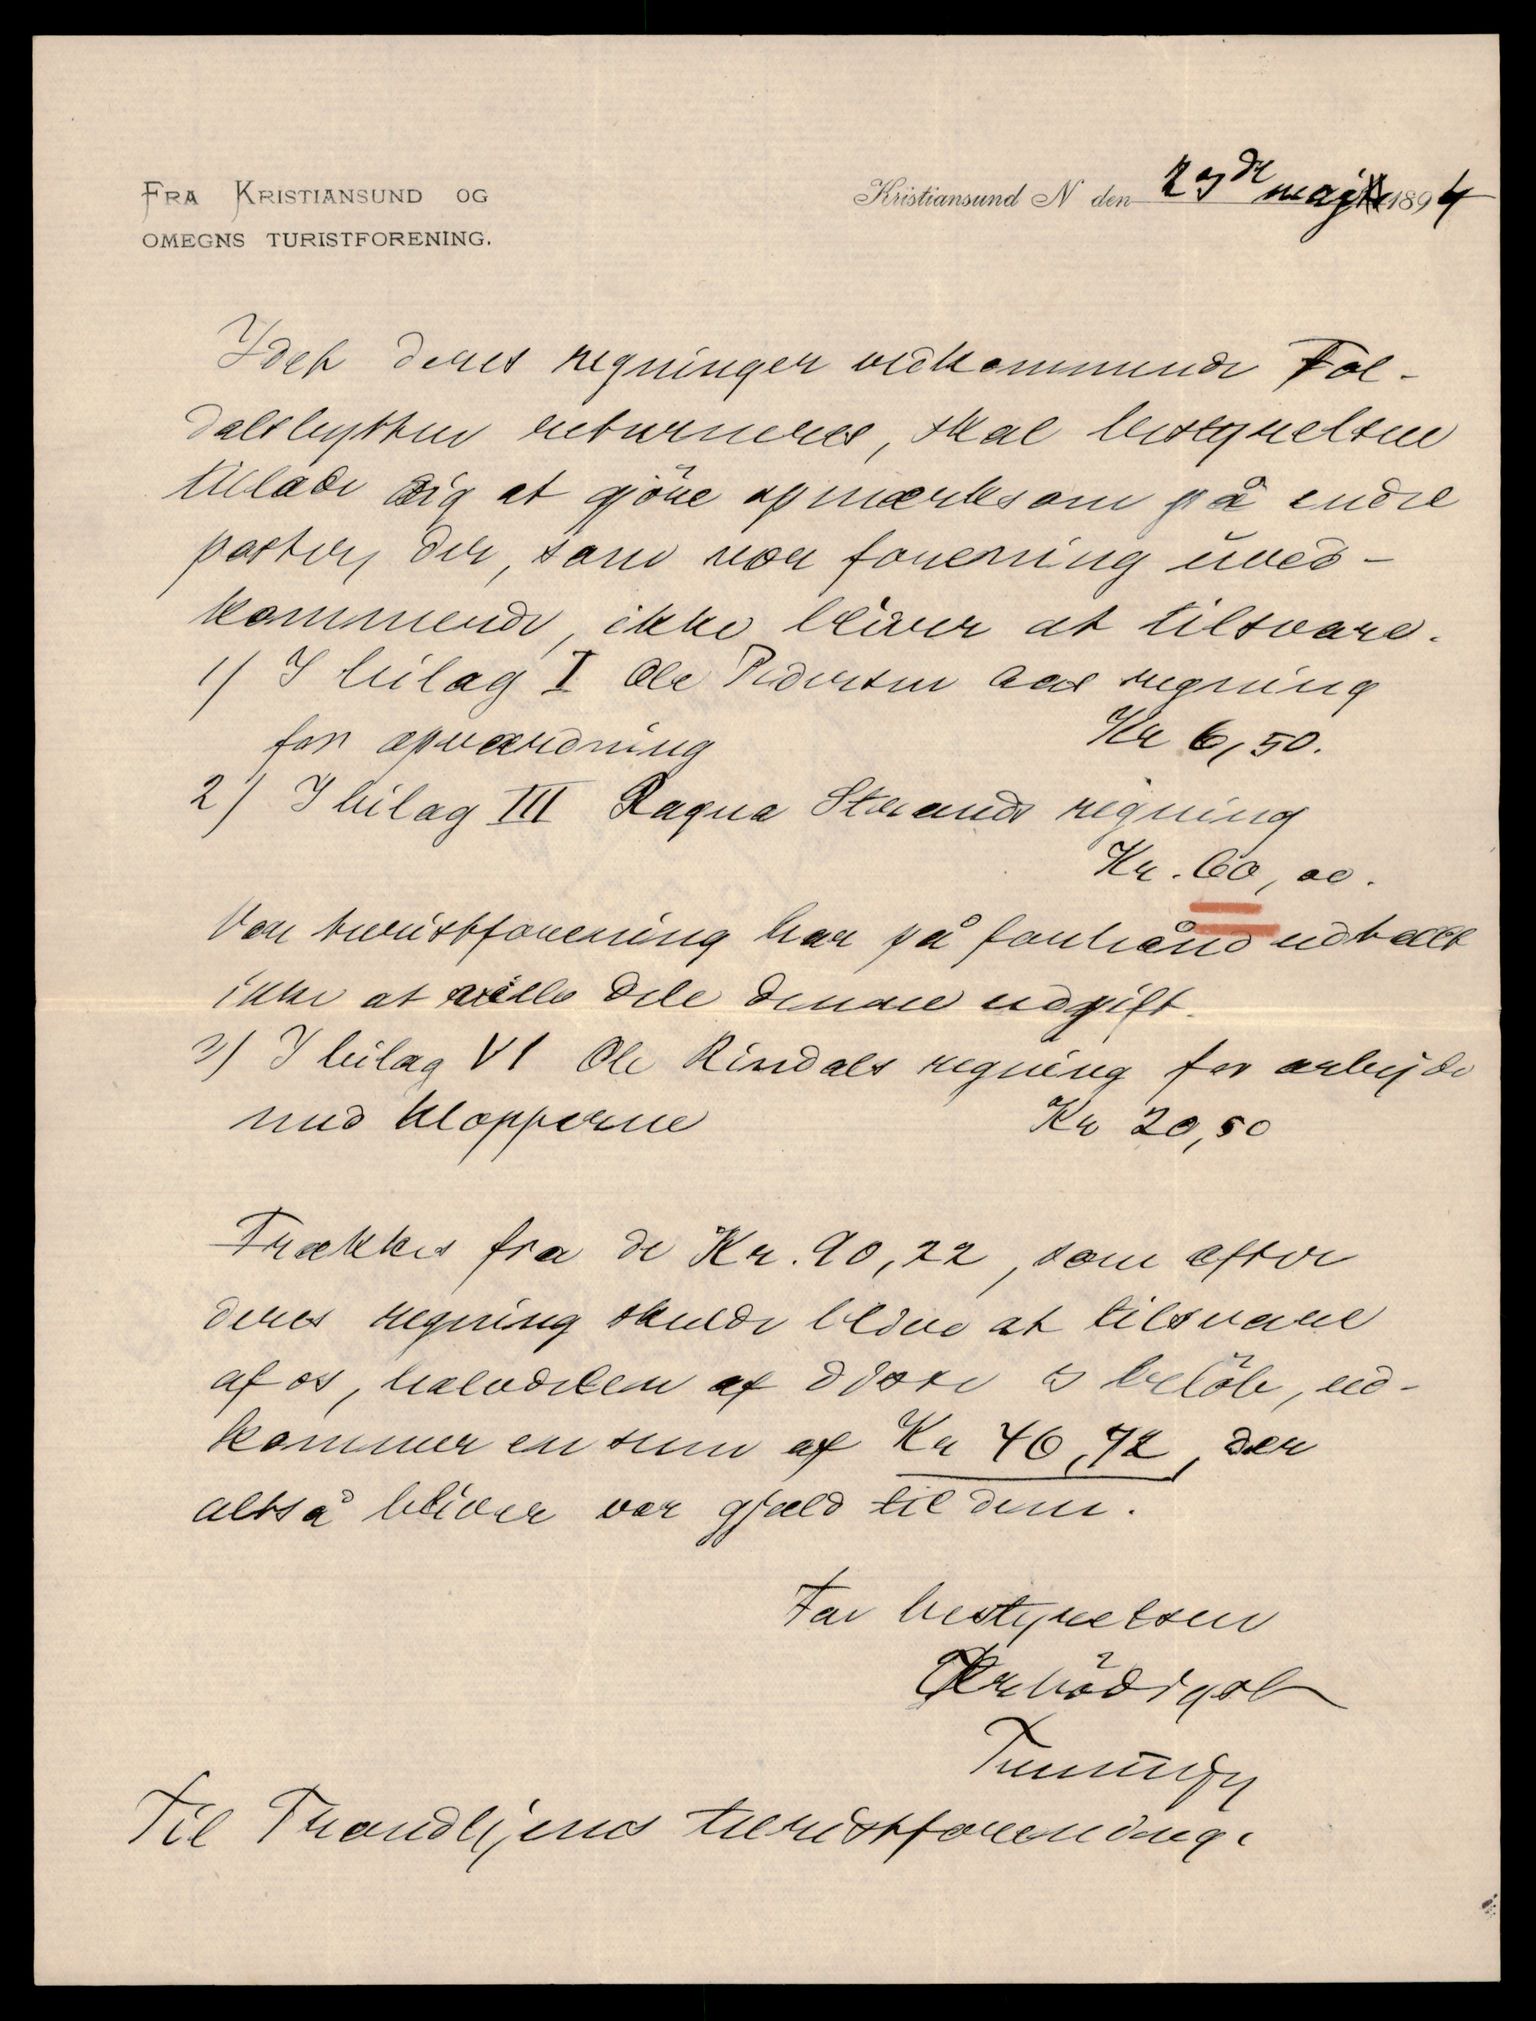 FRA KRISTIANSUND OG
OMEGNS TURISTFORENING.
Kristiansund N den 23de maj 1894
Idet deres regninger vedkommende Fol-
dalshytten returneres, skal bestyrelsen
tillade sig at gjöre opmærksom på endel
poster, der, som vor forening uved-
kommende, ikke bliver at tilsvare.
1) I bilag I Ole Pedersen Aas regning
for opvardning Kr 6,50.
2) I bilag III Ragna Strands regning
Kr. 60,00.
Vor turistforening har på forhånd udtalt
ikke at ville dele denne udgift.
3) I bilag VI Ole Rindals regning for arbejde
med klopperne Kr 20,50
Trækkes fra de Kr. 90,22, som efter
deres regning skulde blive at tilsvare
af os, halvdelen af disse 3 belöb, ud-
kommer en sum af Kr 46,72, der
altså bliver vor gjæld til dem.
For bestyrelsen
Ærbödigst
Til Trondhjems turistforening.